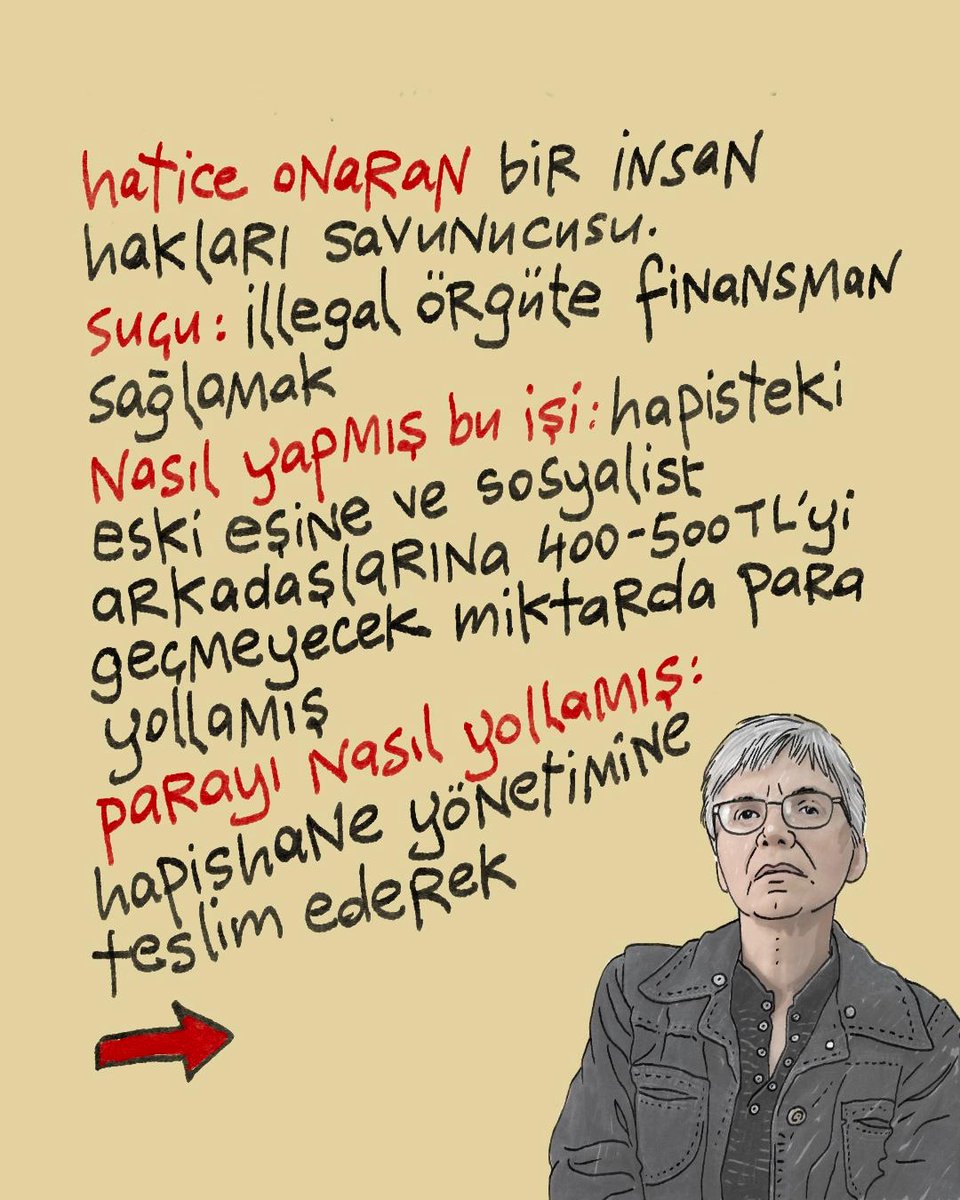 hatice onaran bir insan
hakları savunucusu.
suçu: illegal örgüte finansman
sağlamak
Nasıl yapmış bu işi: hapisteki
eski eşine ve sosyalist
arkadaşlarına 400-500TL'yi
geçmeyecek miktarda para
yollamış
parayı nasıl yollamış:
hapishane yönetimine
teslim ederek